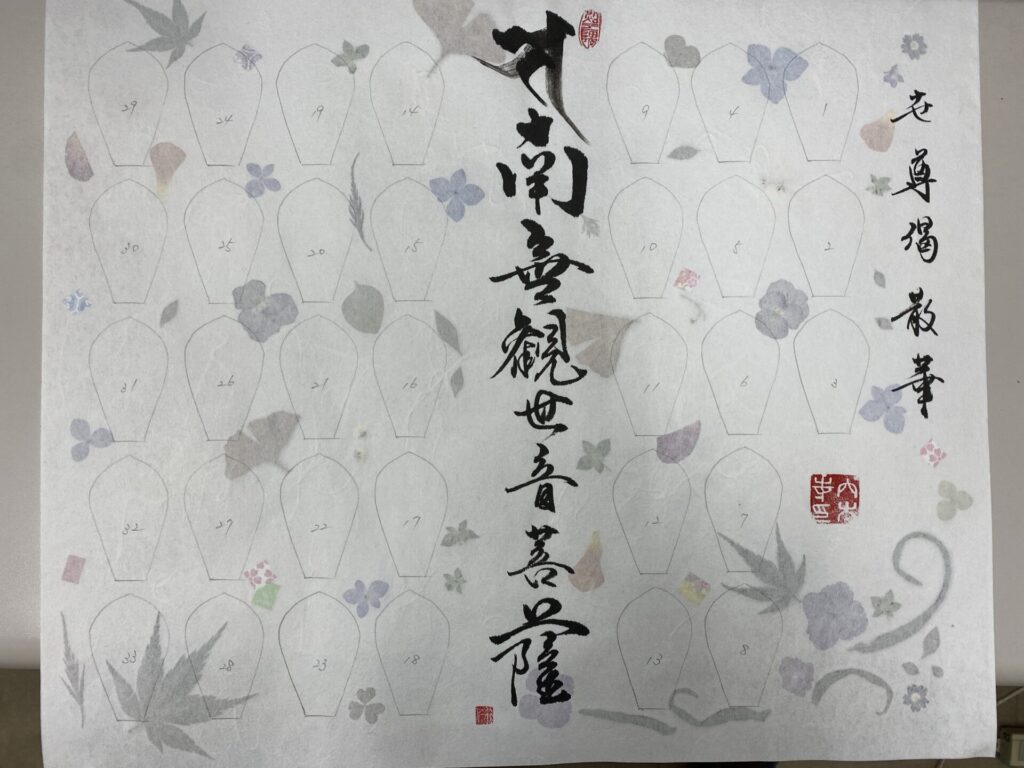 世尊偈散華
1
2
3
4
5
6
7
8
9
10
11
12
13
南無観世音菩薩
14
15
16
17
18
19
20
21
22
23
24
25
26
27
28
29
30
31
32
33